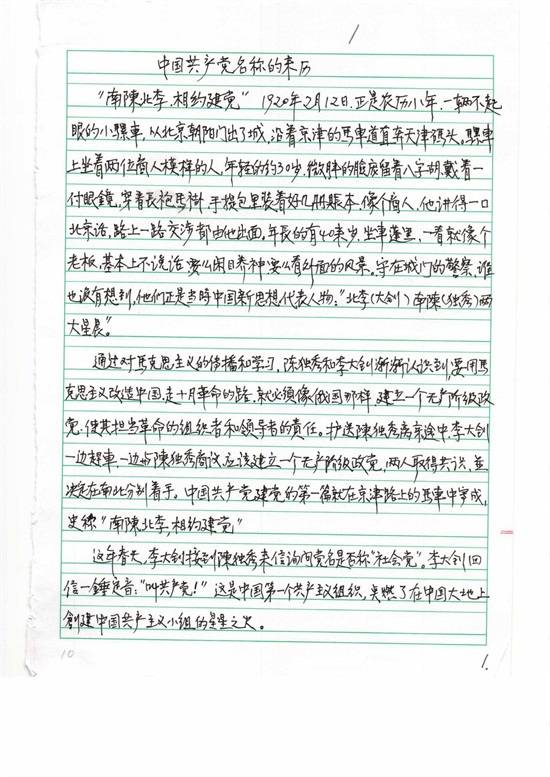 1
中国共产党名称的来历
"南陳北李,相约建党" 1920年2月12日.正是农历小年,一辆不起
眼的小骡車,从北京朝阳门出了城,沿着京津的馬車道直奔天津码头。骡車
上坐着两位商人模样的人,年轻的约30岁.微胖的脸庞留着八字胡.戴着一
付眼鏡,穿着長袍馬掛,手提包里装着好几册賬本.像个商人,他讲得一口
北京话,路上一路交涉都由他出面。年長的有40来岁.坐車蓬里,一看就像个
老板,基本上不说话,要么闲目养神,要么看外面的风景。守在城门的警察,谁
也没有想到,他们正是当時中国新思想代表人物:"北李(大剑)南陳(独秀)两
大星晨"。
通过对馬克思主义的传播和学习,陈独秀和李大剑渐渐认识到,要用馬
克思主义改造中国.走十月革命的路,就必须像俄国那样.建立一个无产阶级政
党,使其担当革命的组织者和领导者的责任。护送陳独秀离京途中,李大剑
一边赶車,一边与陳独秀商议,应该建立一个无产阶级政党,两人取得共识,並
决定在南北分别着手。中国共产党建党的第一篇就在京津路上的馬車中写成,
史称"南陳北李,相约建党"
这年春天,李大剑接到陳独秀来信询问党名是否称"社会党"。李大剑回
信一錘定音:"叫共产党!"这是中国第一个共产主义组织,点燃了在中国大地上
創建中国共产主义小组的星星之火。
10
1.